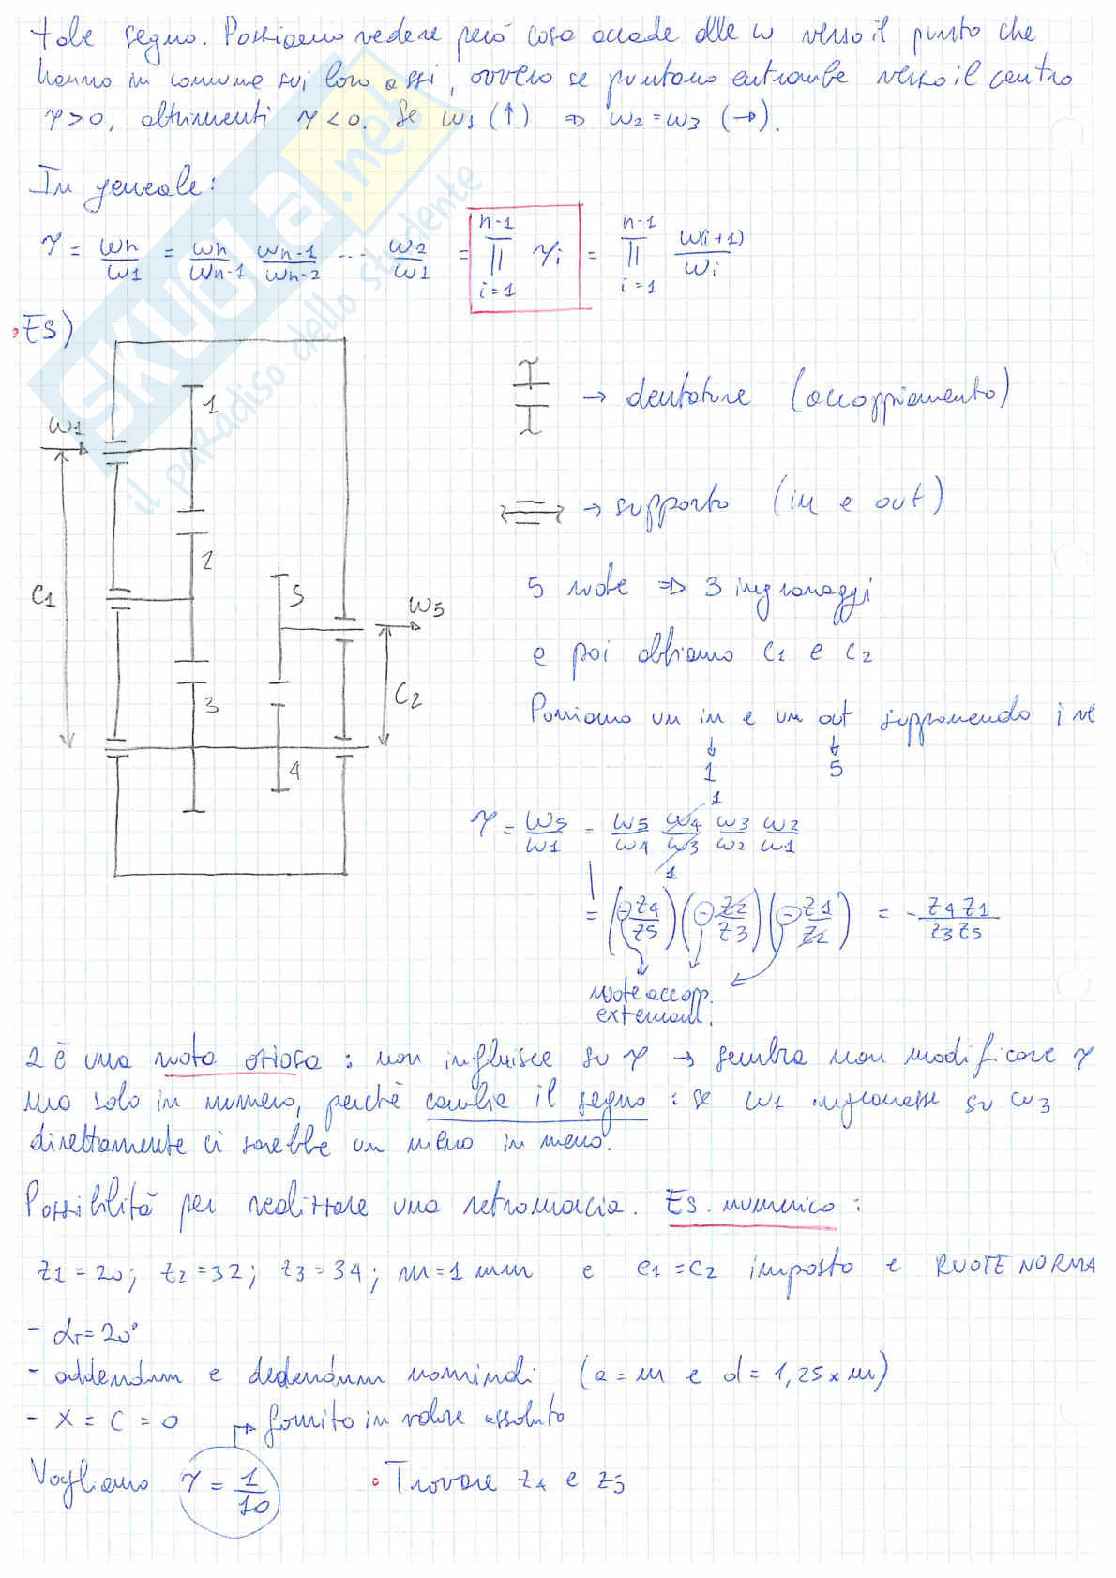 tale segno. Possiamo vedere però cosa accade alle ω verso il punto che
hanno in comune sui loro assi, ovvero se puntano entrambe verso il centro
τ>0, altrimenti τ<0. Se ω1 (↑) ⇒ ω2=ω3 (→).
In generale:
τ = ωn/ω1 = ωn/ωn-1 ωn-1/ωn-2 ... ω2/ω1 = ∏ i=1 n-1 τi = ∏ i=1 n-1 ω(i+1)/ωi
• ES)
1
→ dentature (accoppiamento)
ω1
→ supporto (in e out)
2
C1
5
ω5
5 ruote ⇒ 3 ingranaggi
e poi abbiamo C1 e C2
3
C2
Poniamo un in e un out supponendo i re
4
↓ ↓
1 5
τ = ω5/ω1 = ω5/ω4 ω4/ω3 ω3/ω2 ω2/ω1
1
1
= (-z4/z5) (-z2/z3) (-z1/z2) = - z4 z1/z3 z5
ruote accopp.
external.
2 è una ruota oziosa : non influisce su τ → sembra non modificare τ
ma solo in numero, perchè cambia il segno : se ω1 ingranasse su ω3
direttamente ci sarebbe un meno in meno.
Possibilità per realizzare una retromarcia. Es. numerico :
z1 = 20; z2 = 32; z3 = 34; m = 1 mm e c1 = c2 imposto e RUOTE NORMA
- αT = 20°
- addendum e dedendum nominali (a = m e d = 1,25 x m)
- X = C = 0 → fornito in valore assoluto
Vogliamo τ = 1/10 • Trovare z4 e z5
SKUOLA.net
il paradiso dello studente